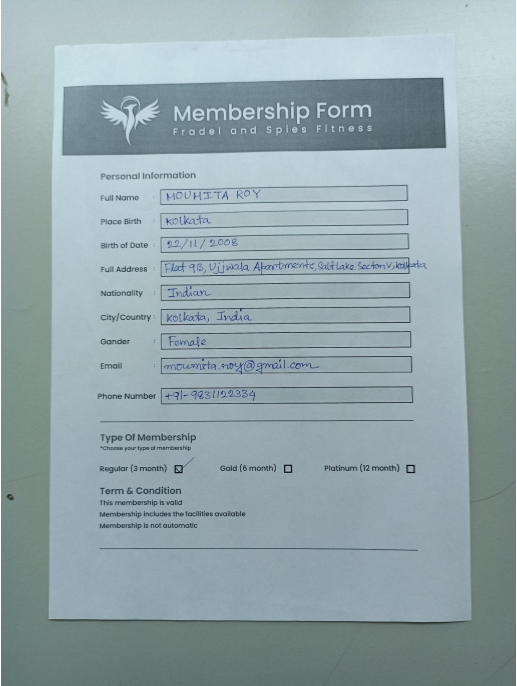 Membership Form
Fradel and Spies Fitness
Personal Information
Full Name : MOUMITA ROY
Place Birth : Kolkata
Birth of Date : 22/11/2008
Full Address : Flat 9B, Ujjwala Apartments, Salt Lake Sector V, Kolkata
Nationality : Indian
City/Country : Kolkata, India
Gander : Female
Email : moumita.roy@gmail.com
Phone Number : +91-9831122334
Type Of Membership
*Choose your type of membership
Regular (3 month) Gold (6 month) Platinum (12 month)
Term & Condition
This membership is valid
Membership includes the facilities available
Membership is not automatic